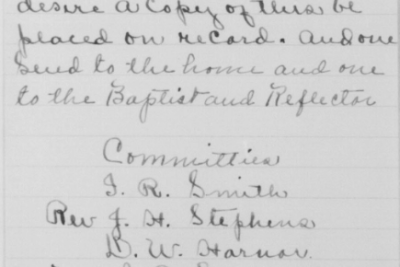 desire a Copy of this be
placed on record. and one
Send to the home and one
to the Baptist and Reflector
Committies
J. R. Smith
Rev J. H. Stephens
D. W.